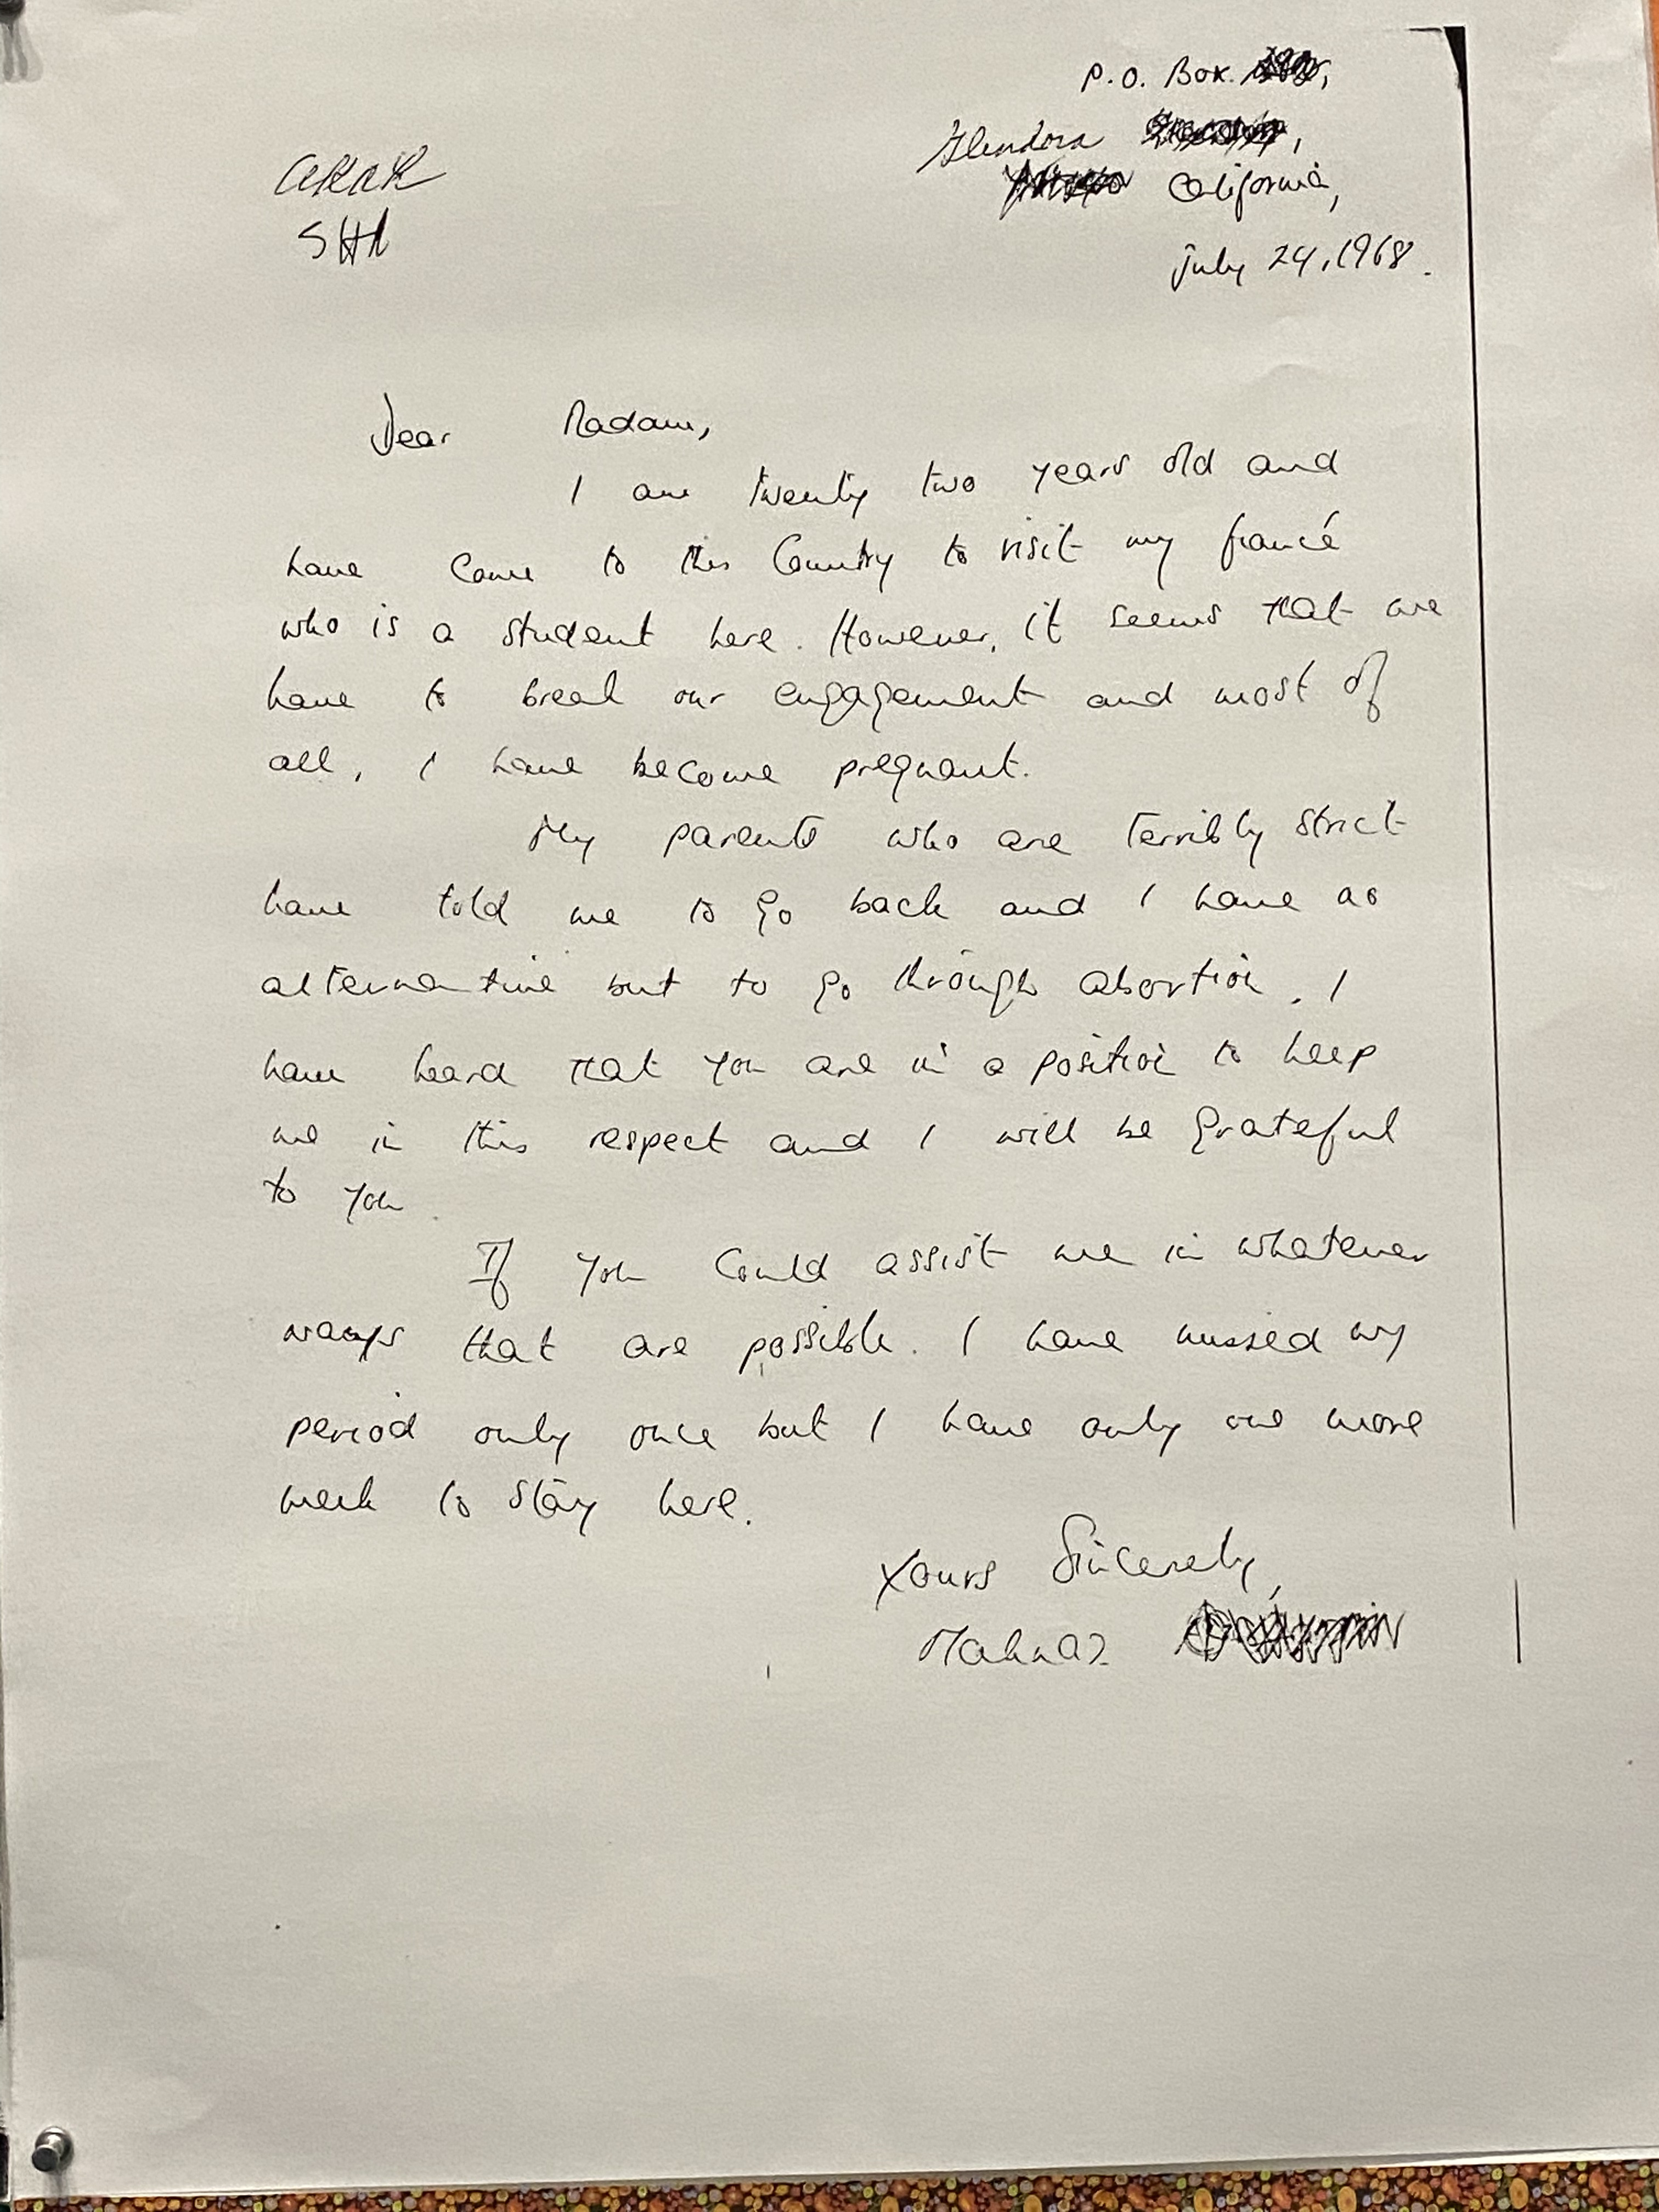 P.O. Box.
Glendora ,
California,
July 24, 1968.
Dear Madam,
I am twenty two years old and
have come to this Country to visit my fiancé
who is a student here. However, it seems that we
have to break our engagement and most of
all, I have become pregnant.
My parents who are terribly strict
have told me to go back and I have no
alternative but to go through abortion. I
have heard that you are in a position to help
me in this respect and I will be grateful
to you.
If you could assist me in whatever
ways that are possible. I have missed my
period only once but I have only one more
week to stay here.
Yours Sincerely,
Mahnaz